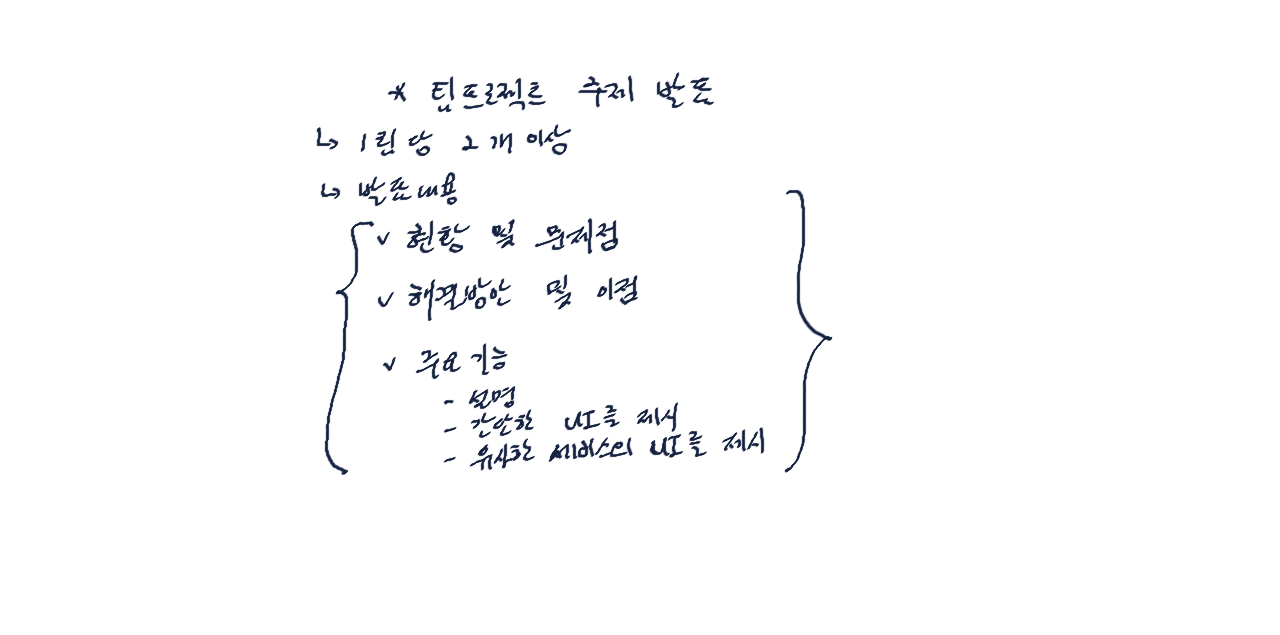 * 팀프로젝트 주제 발표
↳ 1인당 2개 이상
↳ 발표내용
✓ 현황 및 문제점
✓ 해결방안 및 이점
✓ 주요기능
- 설명
- 간단한 UI를 제시
- 유사한 서비스의 UI를 제시